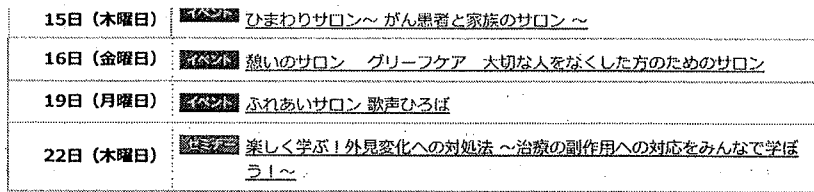 15日（木曜日） イベント ひまわりサロン～ がん患者と家族のサロン ～
16日（金曜日） イベント 憩いのサロン　グリーフケア　大切な人をなくした方のためのサロン
19日（月曜日） イベント ふれあいサロン 歌声ひろば
22日（木曜日） セミナー 楽しく学ぶ！外見変化への対処法 ～治療の副作用への対応をみんなで学ぼ
う！～